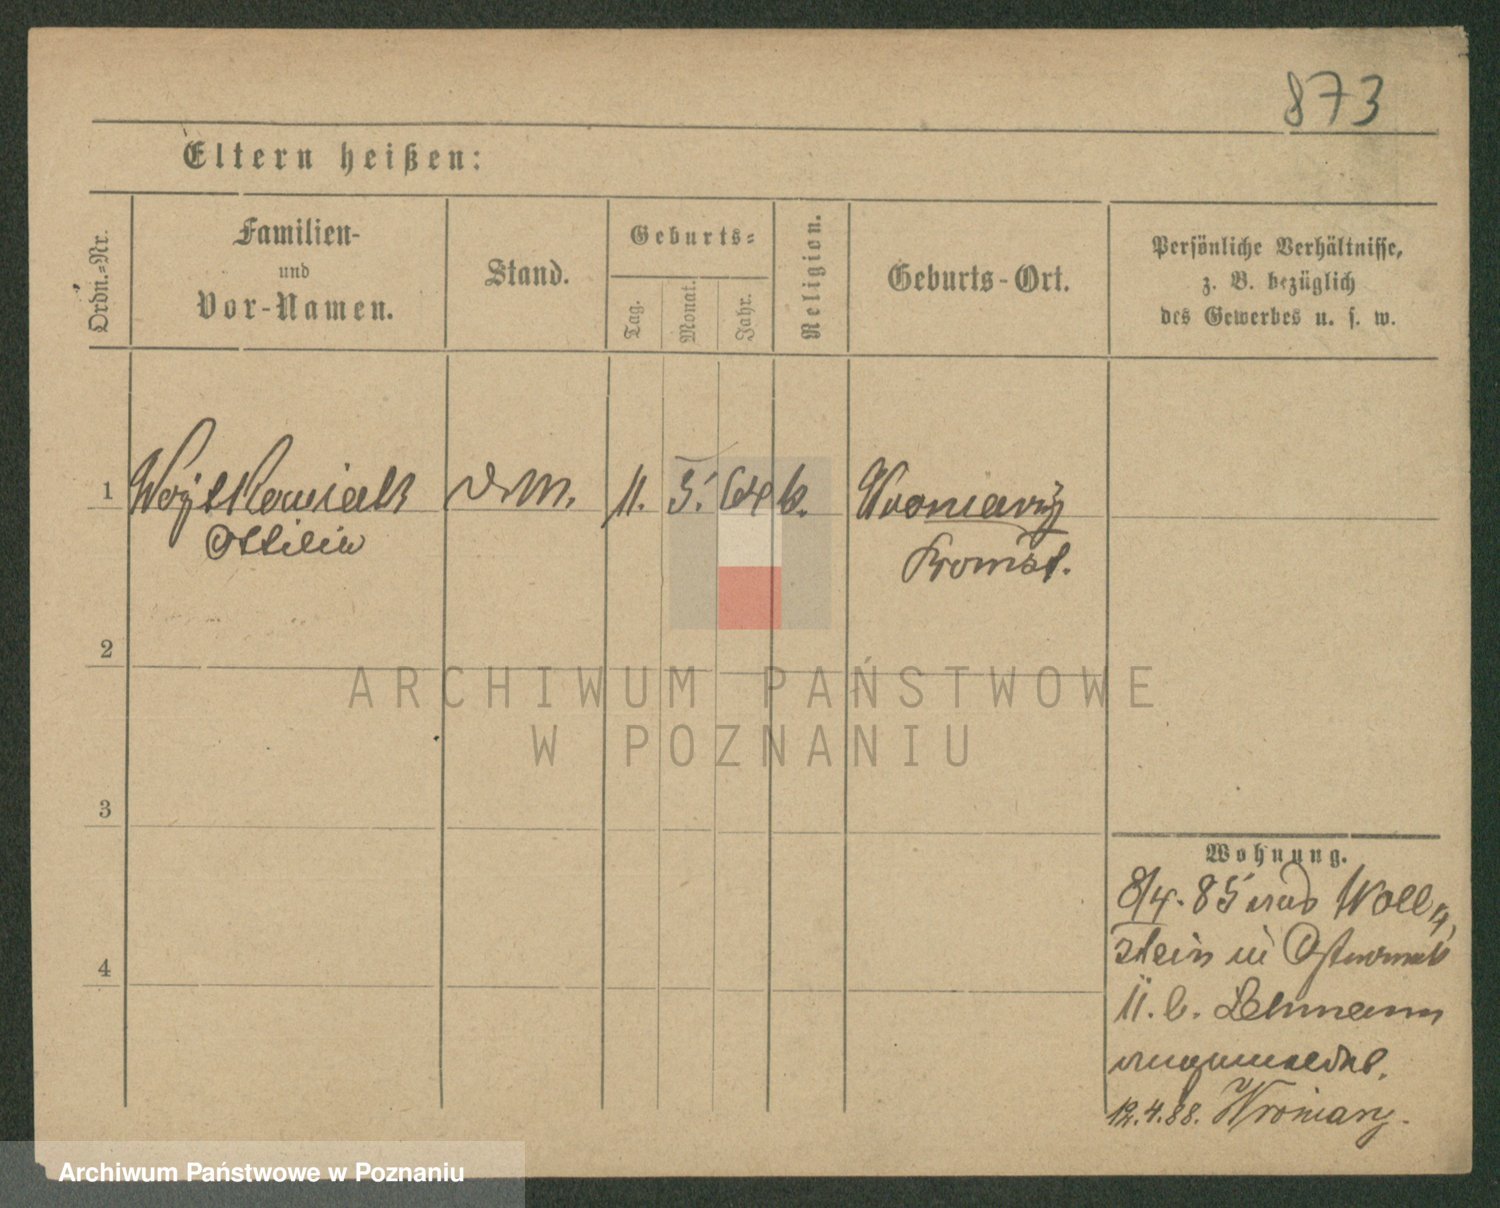 873
Eltern heißen:
Ordn.-Nr.
Familien-
und
Vor-Namen.
Stand.
Geburts-
Tag.
Monat.
Jahr.
Religion.
Geburts-Ort.
Persönliche Verhältnisse,
z. B. bezüglich
des Gewerbes u. s. w.
1
Wojtkowiak
Ottilie
11. 5. 64 k.
Wroniawy
Bomst.
2
3
4
ARCHIWUM PAŃSTWOWE
W POZNANIU
Wohnung.
8/4. 85 aus Woll
stein in
11. b. Lehmann
angemeldet.
12.4.88. Wroniawy.
Archiwum Państwowe w Poznaniu